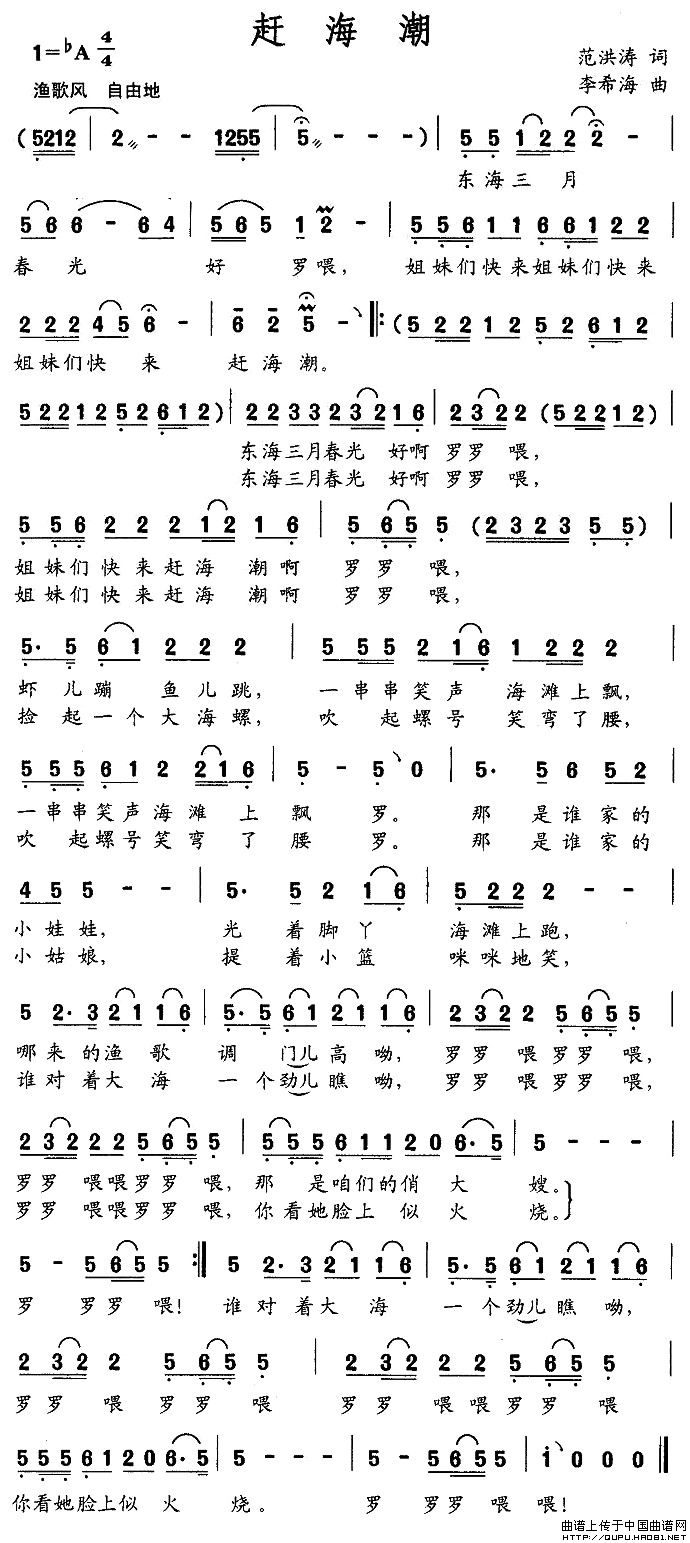 赶海潮
1=♭A 4/4
范洪涛 词
李希海 曲
渔歌风 自由地
(5212 | 2 - - 1255 | 5 - -) | 5 5 1 2 2 2 - |
东海三 月
5 6 6 - 6 4 | 5 6 5 1 2 - | 5 5 6 1 1 6 6 1 2 2
春光 好 罗喂， 姐妹们快来姐妹们快来
2 2 2 4 5 6 - | 6 2 5 - ‖: (5 2 2 1 2 5 2 6 1 2
姐妹们快 来 赶海潮。
5 2 2 1 2 5 2 6 1 2) | 2 2 3 3 2 3 2 1 6 | 2 3 2 2 (5 2 2 1 2) |
东海三月春光 好啊 罗罗 喂，
东海三月春光 好啊 罗罗 喂，
5 5 6 2 2 2 1 2 1 6 | 5 6 5 5 (2 3 2 3 5 5) |
姐妹们快来赶海 潮啊 罗罗 喂，
姐妹们快来赶海 潮啊 罗罗 喂，
5· 5 6 1 2 2 2 | 5 5 5 2 1 6 1 2 2 2
虾 儿蹦 鱼儿跳， 一串串笑声 海滩上飘，
捡 起一个大海螺， 吹 起螺号 笑弯了腰，
5 5 5 6 1 2 2 1 6 | 5 - 5 0 | 5· 5 6 5 2
一串串笑声海滩 上 飘 罗。 那 是谁家的
吹 起螺号笑弯 了 腰 罗。 那 是谁家的
4 5 5 - - | 5· 5 2 1 6 | 5 2 2 2 - -
小娃娃， 光 着脚丫 海滩上跑，
小姑娘， 提 着小篮 咪咪地笑，
5 2· 3 2 1 1 6 | 5· 5 6 1 2 1 1 6 | 2 3 2 2 5 6 5 5
哪来的渔歌 调 门儿高呦， 罗罗 喂罗罗 喂，
谁对着大海 一个劲儿瞧呦， 罗罗 喂罗罗 喂，
2 3 2 2 2 5 6 5 5 | 5 5 5 6 1 1 2 0 6· 5 | 5 - - - |
罗罗 喂喂罗罗 喂， 那 是咱们的俏 大 嫂。
罗罗 喂喂罗罗 喂， 你看她脸上 似 火 烧。
5 - 5 6 5 5 :‖ 5 2· 3 2 1 1 6 | 5· 5 6 1 2 1 1 6
罗 罗罗 喂！ 谁对着大海 一个劲儿瞧呦，
2 3 2 2 5 6 5 5 | 2 3 2 2 2 5 6 5 5
罗罗 喂 罗罗 喂 罗罗 喂喂罗罗 喂
5 5 5 6 1 2 0 6· 5 | 5 - - - | 5 - 5 6 5 5 | i 0 0 0 ‖
你看她脸上似 火 烧。 罗 罗罗 喂 喂！
曲谱上传于中国曲谱网
HTTP://QUPU.HAO81.NET